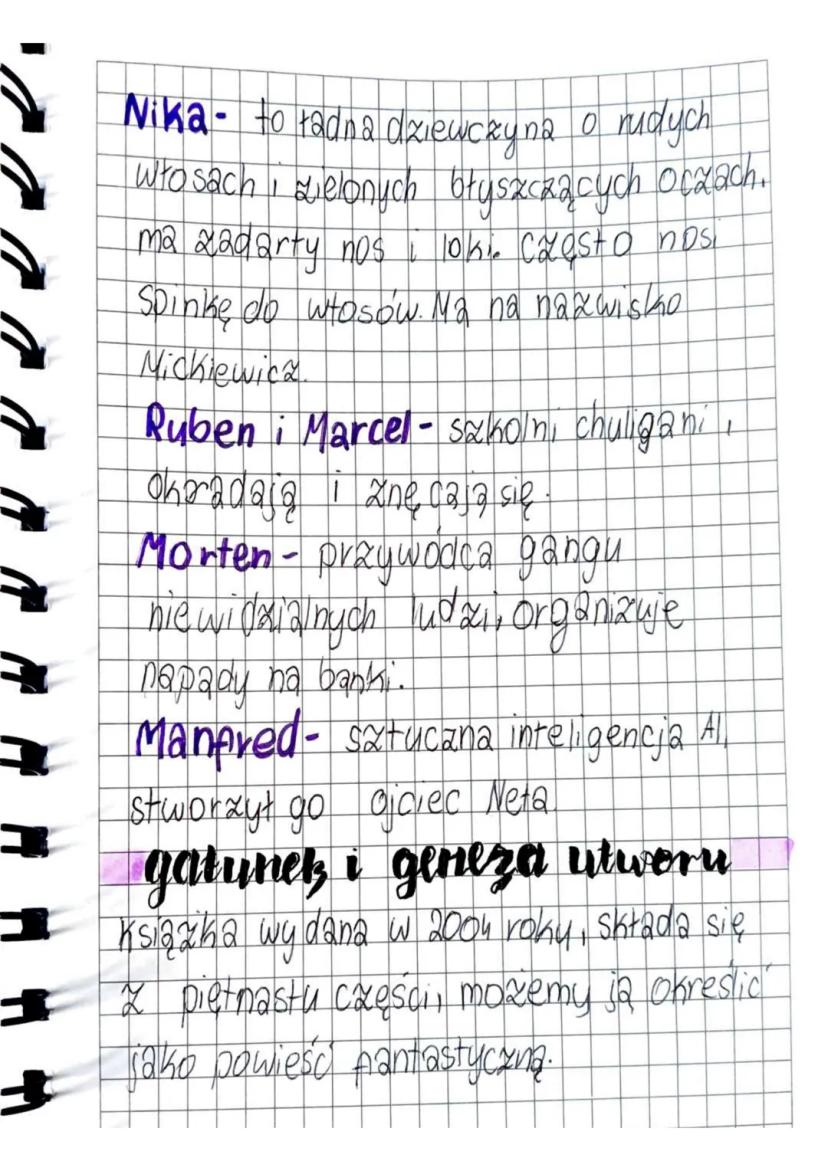 Nika- to ładna dziewczyna o rudych
włosach i zielonych błyszczących oczach.
ma zadarty nos i loki. często nosi
spinkę do włosów. Ma na nazwisko
Mickiewicz.
Ruben i Marcel- szkolni chuligani,
okradają i znęcają się.
Morten- przywódca gangu
niewidzialnych ludzi, organizuje
napady na banki.
Manfred- sztuczna inteligencja AI,
stworzył go ojciec Neta
gatunek i geneza utworu
książka wydana w 2004 roku, składa się
z piętnastu części, możemy ją określić
jako powieść fantastyczną.